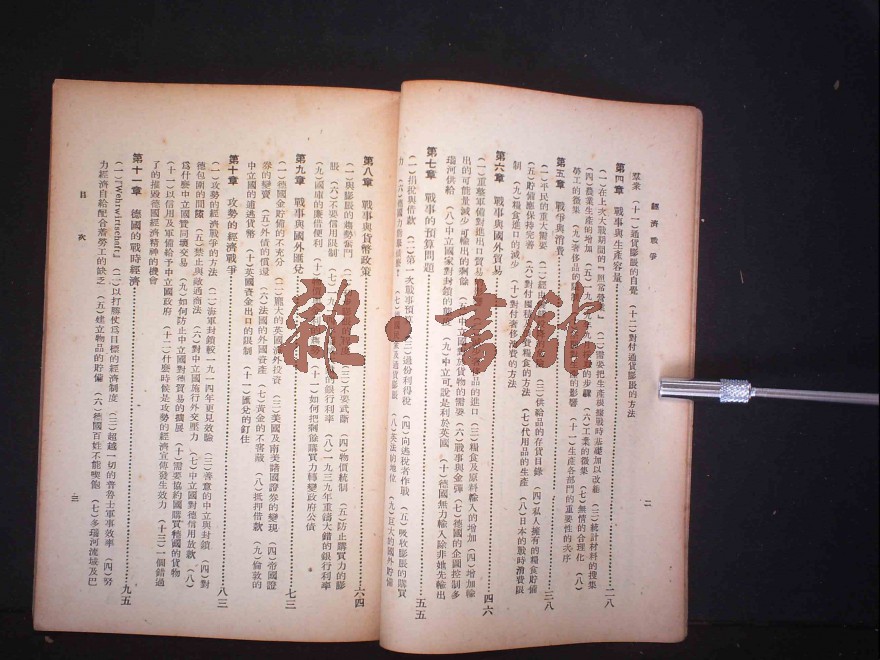 經濟戰爭
二
羣業 (十一)通貨膨脹的自覺 (十二)對付通貨膨脹的方法
第四章 戰事與生產容量 二八
(一)在上次大戰期間的『照常營業』 (二)需要把生產根據戰時基礎加以改造 (三)統計材料的搜集
(四)農業生產的增加 (五)一九 的步驟 (六)工業的徵集 (七)無情的合理化 (八)
勞工的徵集 (九)奢侈品的 的影響 (十一)生產各部門的重要性的次序
第五章 戰爭與消費 三八
(一)平民的重大需要 (二)經由 (三)供給品的存貨目錄 (四)私人擁有的糧食貯備
(五)貯備應保持完善 (六)對付囤積 費糧食的方法 (七)代用品的生產 (八)日本的戰時消費限
制 (九)糧食進口的減少 (十)對付奢侈消費的方法
第六章 戰事與國外貿易 四六
(一)重整軍備對進出口貿易 品的進口 (三)糧食及原料輸入的增加 (四)增加輸
出的可能量減少可輸出的剩餘 中立國對放貨物的需要 (六)戰事與金彈 (七)德國的企圖控制多
瑙河供給 (八)中立國家對封鎖的 (九)中立可說是利於英國 (十)德國無力輸入除非她先輸出
第七章 戰事的預算問題 五五
(一)捐稅與借款 (二)第一次戰事預算 (三)過份利得稅 (四)向逃稅者作戰 (五)吸收膨脹的購買
力 (六)德國 (七) 及通貨膨脹 (八)英法的地位 (九)巨大的國外貯備
第八章 戰事與貨幣政策 六四
(一)與膨脹的趨勢奮鬥 (三)不要武斷 (四)物價統制 (五)防止購買力的膨
脹 (六)不要信用限制 (七)一九 的銀行利率 (八)一九三九年重蹈大錯的銀行利率
(九)國庫的廉借便利 (十) (十一)如何把剩餘購買力轉變政府公債
第九章 戰事與國外匯兌 七三
(一)德國金貯備的不充分 (二)龐大的英國海外投資 (三)美國及南美諸國證券的變現 (四)帝國證
券的變賣 (五)外債的償還 (六)法國的外國資產 (七)黃金的不害蔽 (八)抵押借款 (九)倫敦的
中立國的逋逃貨幣 (十)英國資金出口的限制 (十一)匯兌的釘住
第十章 攻勢的經濟戰爭 八三
(一)攻勢的經濟戰爭的方法 (二)海軍封鎖較一九一四年更見效驗 (三)善意的中立與封鎖 (四)對
德包圍的間隙 (五)禁止與敵通商法 (六)對中立國施行外交壓力 (七)中立國對德信用放款 (八)
爲什麼中立國贊同壞交易 (九)如何防止中立國對德貿易的擴展 (十)需要協約國購買轉德國的貨物
(十一)以信用及軍備給予中立國政府 (十二)什麼時候是攻勢的經濟宣傳發生效力 (十三)一個錯過
了的摧毀德國經濟精神的機會
第十一章 德國的戰時經濟 九五
(一)『Wehrwirtschaft』 (二)以打勝仗爲目標的經濟制度 (三)超越一切的普魯士軍事效率 (四)努
力經濟自給配合着勞工的缺乏 (五)建立物品的貯備 (六)德國百姓不能喫飽 (七)多瑙河流域及巴
目次
三
雜·書館